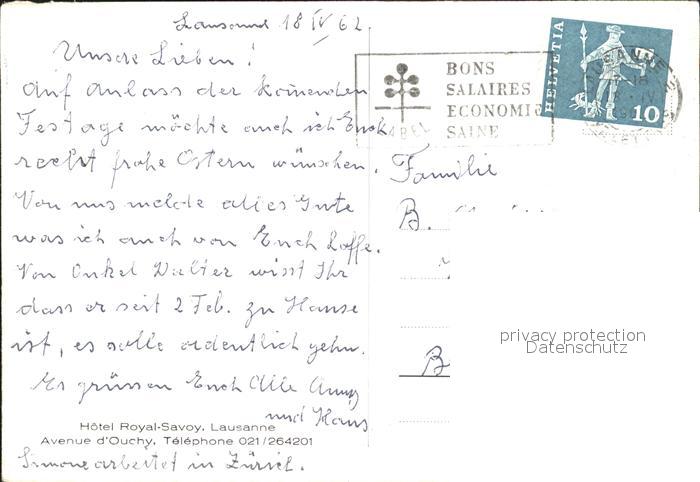 Lausanne 18 IV 62.
Unsere Lieben!
Auf Anlass der komenden
Festage möchte auch ich Euch
recht frohe Ostern wünschen.
Von uns melde alles Gute
was ich auch von Euch hoffe.
Von Onkel Walter wisst Ihr
dass er seit 2 Feb. zu Hause
ist, es solle ordentlich gehn.
Es grüssen Euch Alle Anny
und Hans
Hôtel Royal-Savoy, Lausanne
Avenue d'Ouchy, Téléphone 021/264201
Simone arbeitet in Zürich.
BONS
SALAIRES
ECONOMIE
SAINE
LABEL
HELVETIA
10
LAUSANNE
Familie
B.
B
privacy protection
Datenschutz